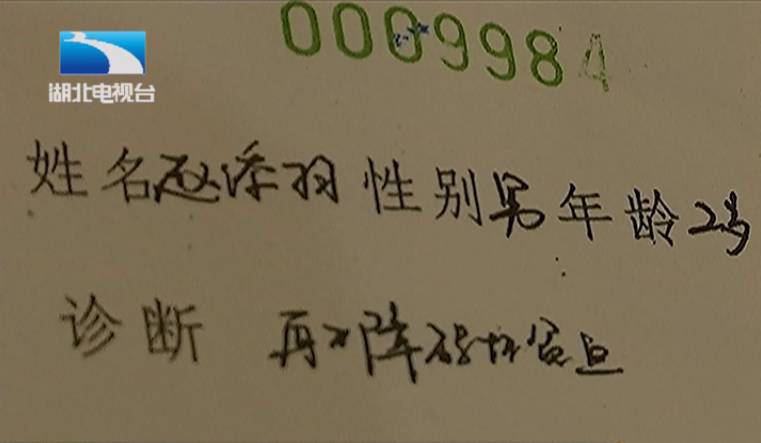 0009984
湖北电视台
姓名赵添羽性别男年龄2岁
诊断 再生障碍性贫血